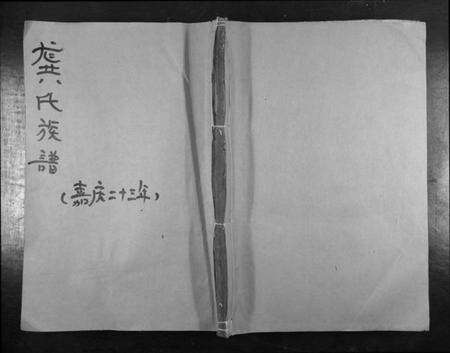 龚氏族譜
（嘉庆二十三年）